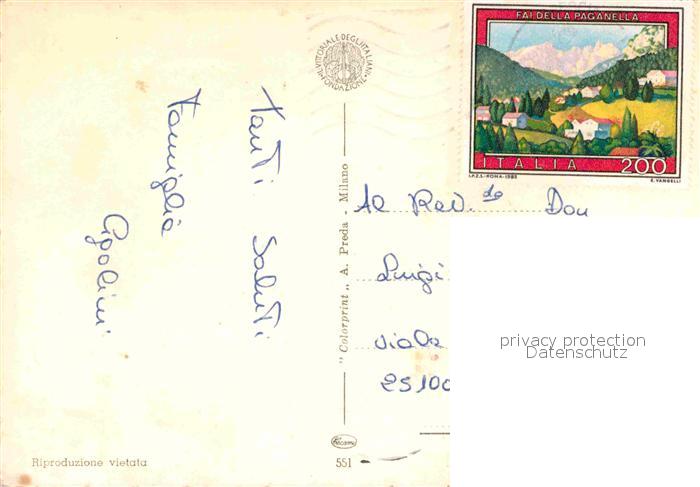 Tanti Saluti
Famiglia
Cipolini
IL VITTORIALE DEGLI ITALIANI
FONDAZIONE
"Colorprint" A. Preda - Milano
551
Riproduzione vietata
FAI DELLA PAGANELLA
ITALIA 200
I.P.Z.S.-ROMA-1983
E. VANGELLI
Al Rev.do Don
Luigi
viale
25100
privacy protection
Datenschutz